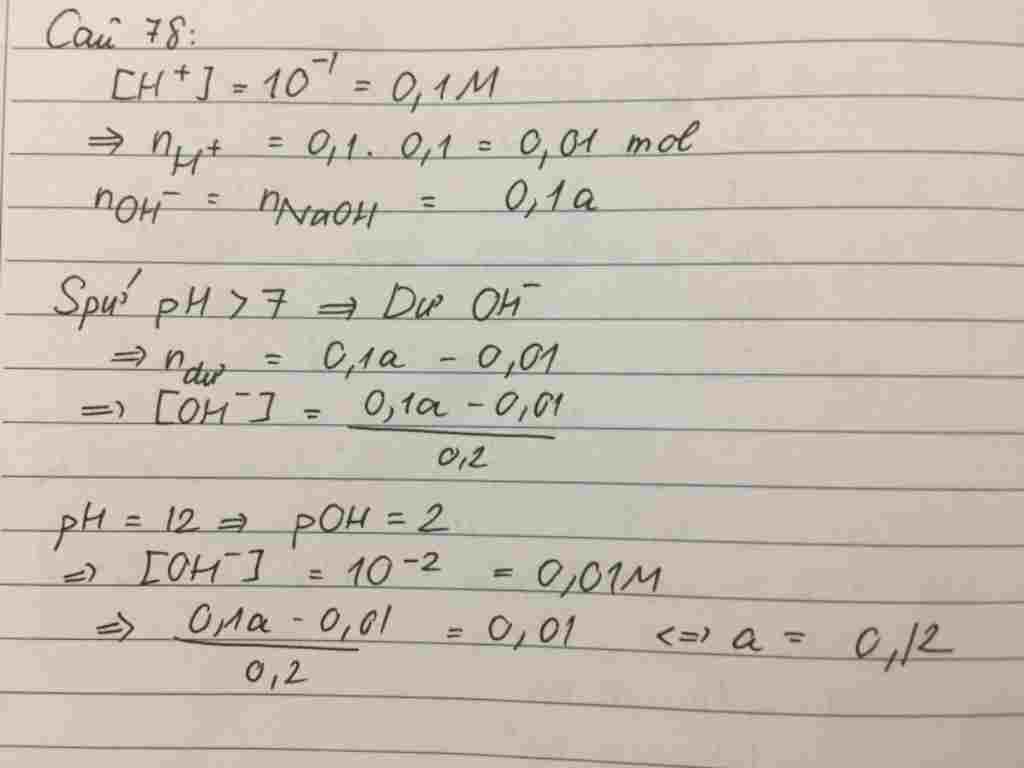 Câu 78:
[H⁺] = 10⁻¹ = 0,1M
⇒ n_H⁺ = 0,1. 0,1 = 0,01 mol
n_OH⁻ = n_NaOH = 0,1a
Spứ pH > 7 ⇒ Dư OH⁻
⇒ n_dư = 0,1a - 0,01
=> [OH⁻] = (0,1a - 0,01) / 0,2
pH = 12 ⇒ pOH = 2
=> [OH⁻] = 10⁻² = 0,01M
⇒ (0,1a - 0,01) / 0,2 = 0,01 <=> a = 0,12